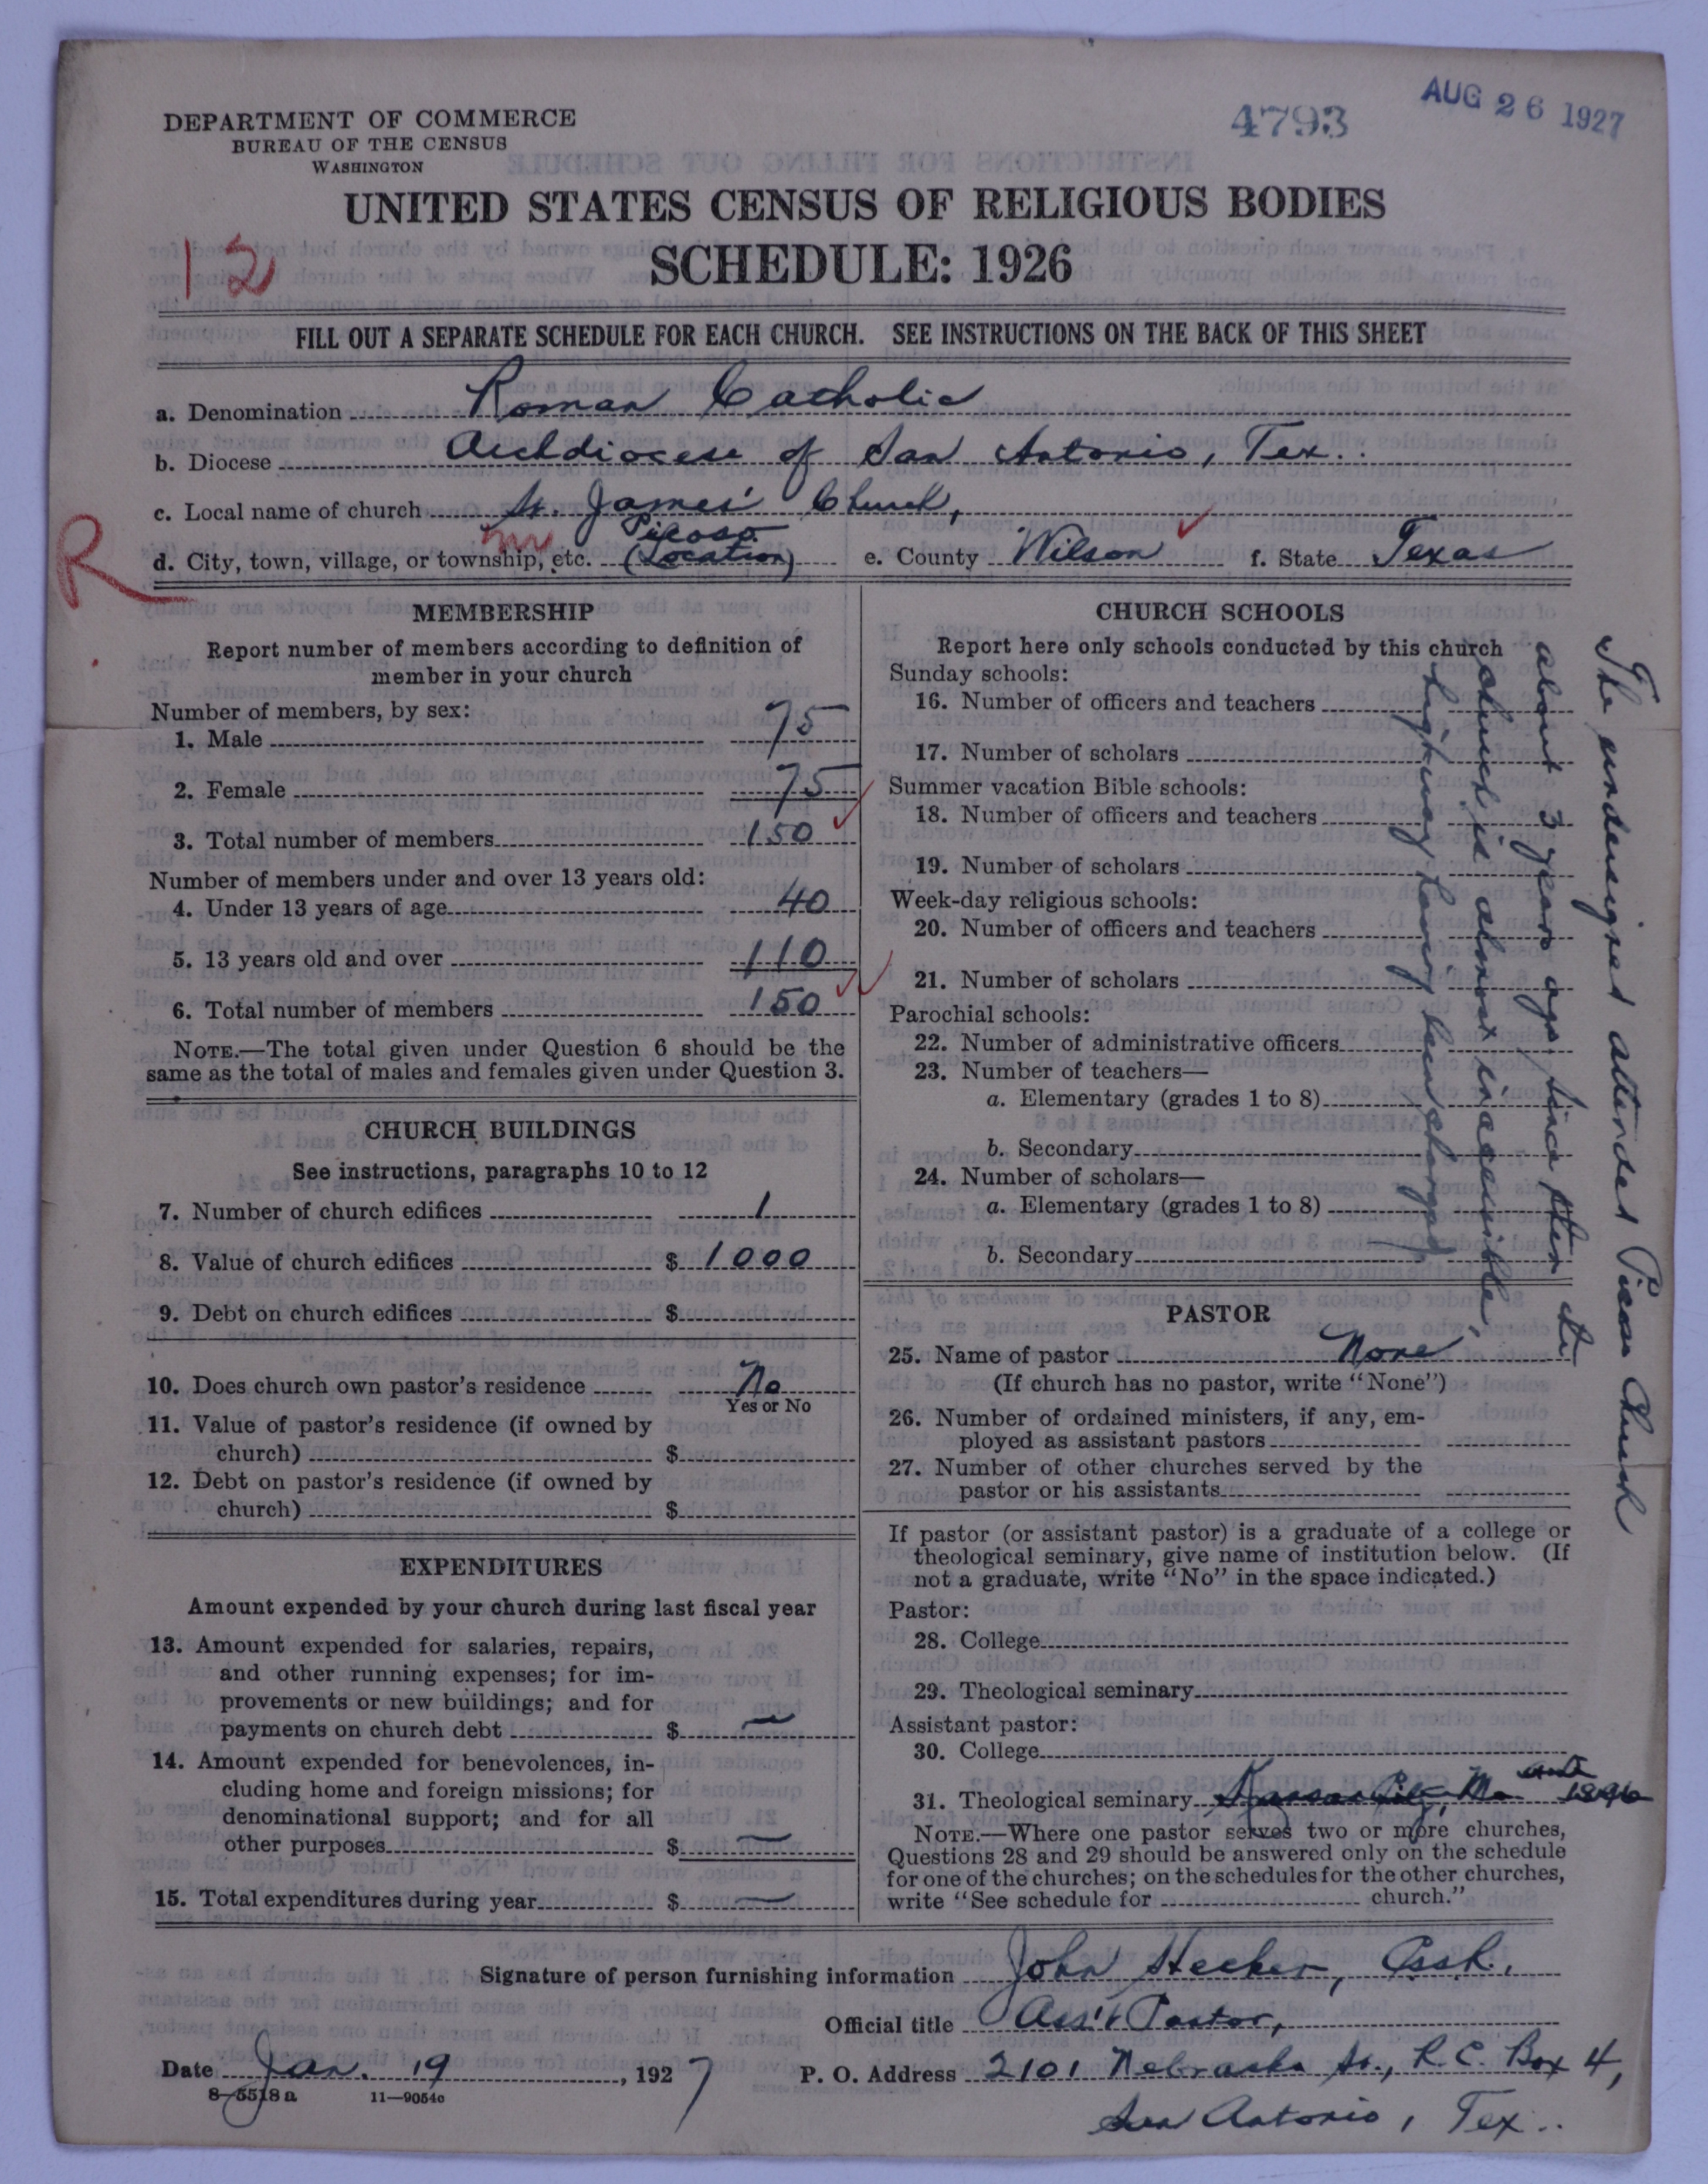 DEPARTMENT OF COMMERCE
BUREAU OF THE CENSUS
WASHINGTON
4793
AUG 26 1927
UNITED STATES CENSUS OF RELIGIOUS BODIES
SCHEDULE: 1926
12
FILL OUT A SEPARATE SCHEDULE FOR EACH CHURCH. SEE INSTRUCTIONS ON THE BACK OF THIS SHEET
a. Denomination Roman Catholic
b. Diocese Archdiocese of San Antonio, Tex.
c. Local name of church St. James' Church,
R
d. City, town, village, or township, etc. Picoso (Location) e. County Wilson f. State Texas
MEMBERSHIP
Report number of members according to definition of
member in your church
Number of members, by sex:
1. Male 75
2. Female 75
3. Total number of members 150
Number of members under and over 13 years old:
4. Under 13 years of age 40
5. 13 years old and over 110
6. Total number of members 150
NOTE.—The total given under Question 6 should be the
same as the total of males and females given under Question 3.
CHURCH BUILDINGS
See instructions, paragraphs 10 to 12
7. Number of church edifices 1
8. Value of church edifices $ 1000
9. Debt on church edifices $
10. Does church own pastor's residence No
Yes or No
11. Value of pastor's residence (if owned by
church) $
12. Debt on pastor's residence (if owned by
church) $
EXPENDITURES
Amount expended by your church during last fiscal year
13. Amount expended for salaries, repairs,
and other running expenses; for im-
provements or new buildings; and for
payments on church debt $ —
14. Amount expended for benevolences, in-
cluding home and foreign missions; for
denominational support; and for all
other purposes $ —
15. Total expenditures during year $ —
CHURCH SCHOOLS
Report here only schools conducted by this church
Sunday schools:
16. Number of officers and teachers
17. Number of scholars
Summer vacation Bible schools:
18. Number of officers and teachers
19. Number of scholars
Week-day religious schools:
20. Number of officers and teachers
21. Number of scholars
Parochial schools:
22. Number of administrative officers
23. Number of teachers—
a. Elementary (grades 1 to 8)
b. Secondary
24. Number of scholars—
a. Elementary (grades 1 to 8)
b. Secondary
The undersigned attended Picoso Church
about 3 years ago. Since then the
church is almost inaccessible,
highway having been changed
PASTOR
25. Name of pastor None
(If church has no pastor, write "None")
26. Number of ordained ministers, if any, em-
ployed as assistant pastors
27. Number of other churches served by the
pastor or his assistants
If pastor (or assistant pastor) is a graduate of a college or
theological seminary, give name of institution below. (If
not a graduate, write "No" in the space indicated.)
Pastor:
28. College
29. Theological seminary
Assistant pastor:
30. College
31. Theological seminary Kansas City, Mo 1896
NOTE.—Where one pastor serves two or more churches,
Questions 28 and 29 should be answered only on the schedule
for one of the churches; on the schedules for the other churches,
write "See schedule for church."
Signature of person furnishing information John Hecker,
Official title Ass't Pastor,
Date Jan. 19, 1927 P. O. Address 2101 Nebraska St., R.C. Box 4,
8-5518 a 11—9054c
San Antonio, Tex.